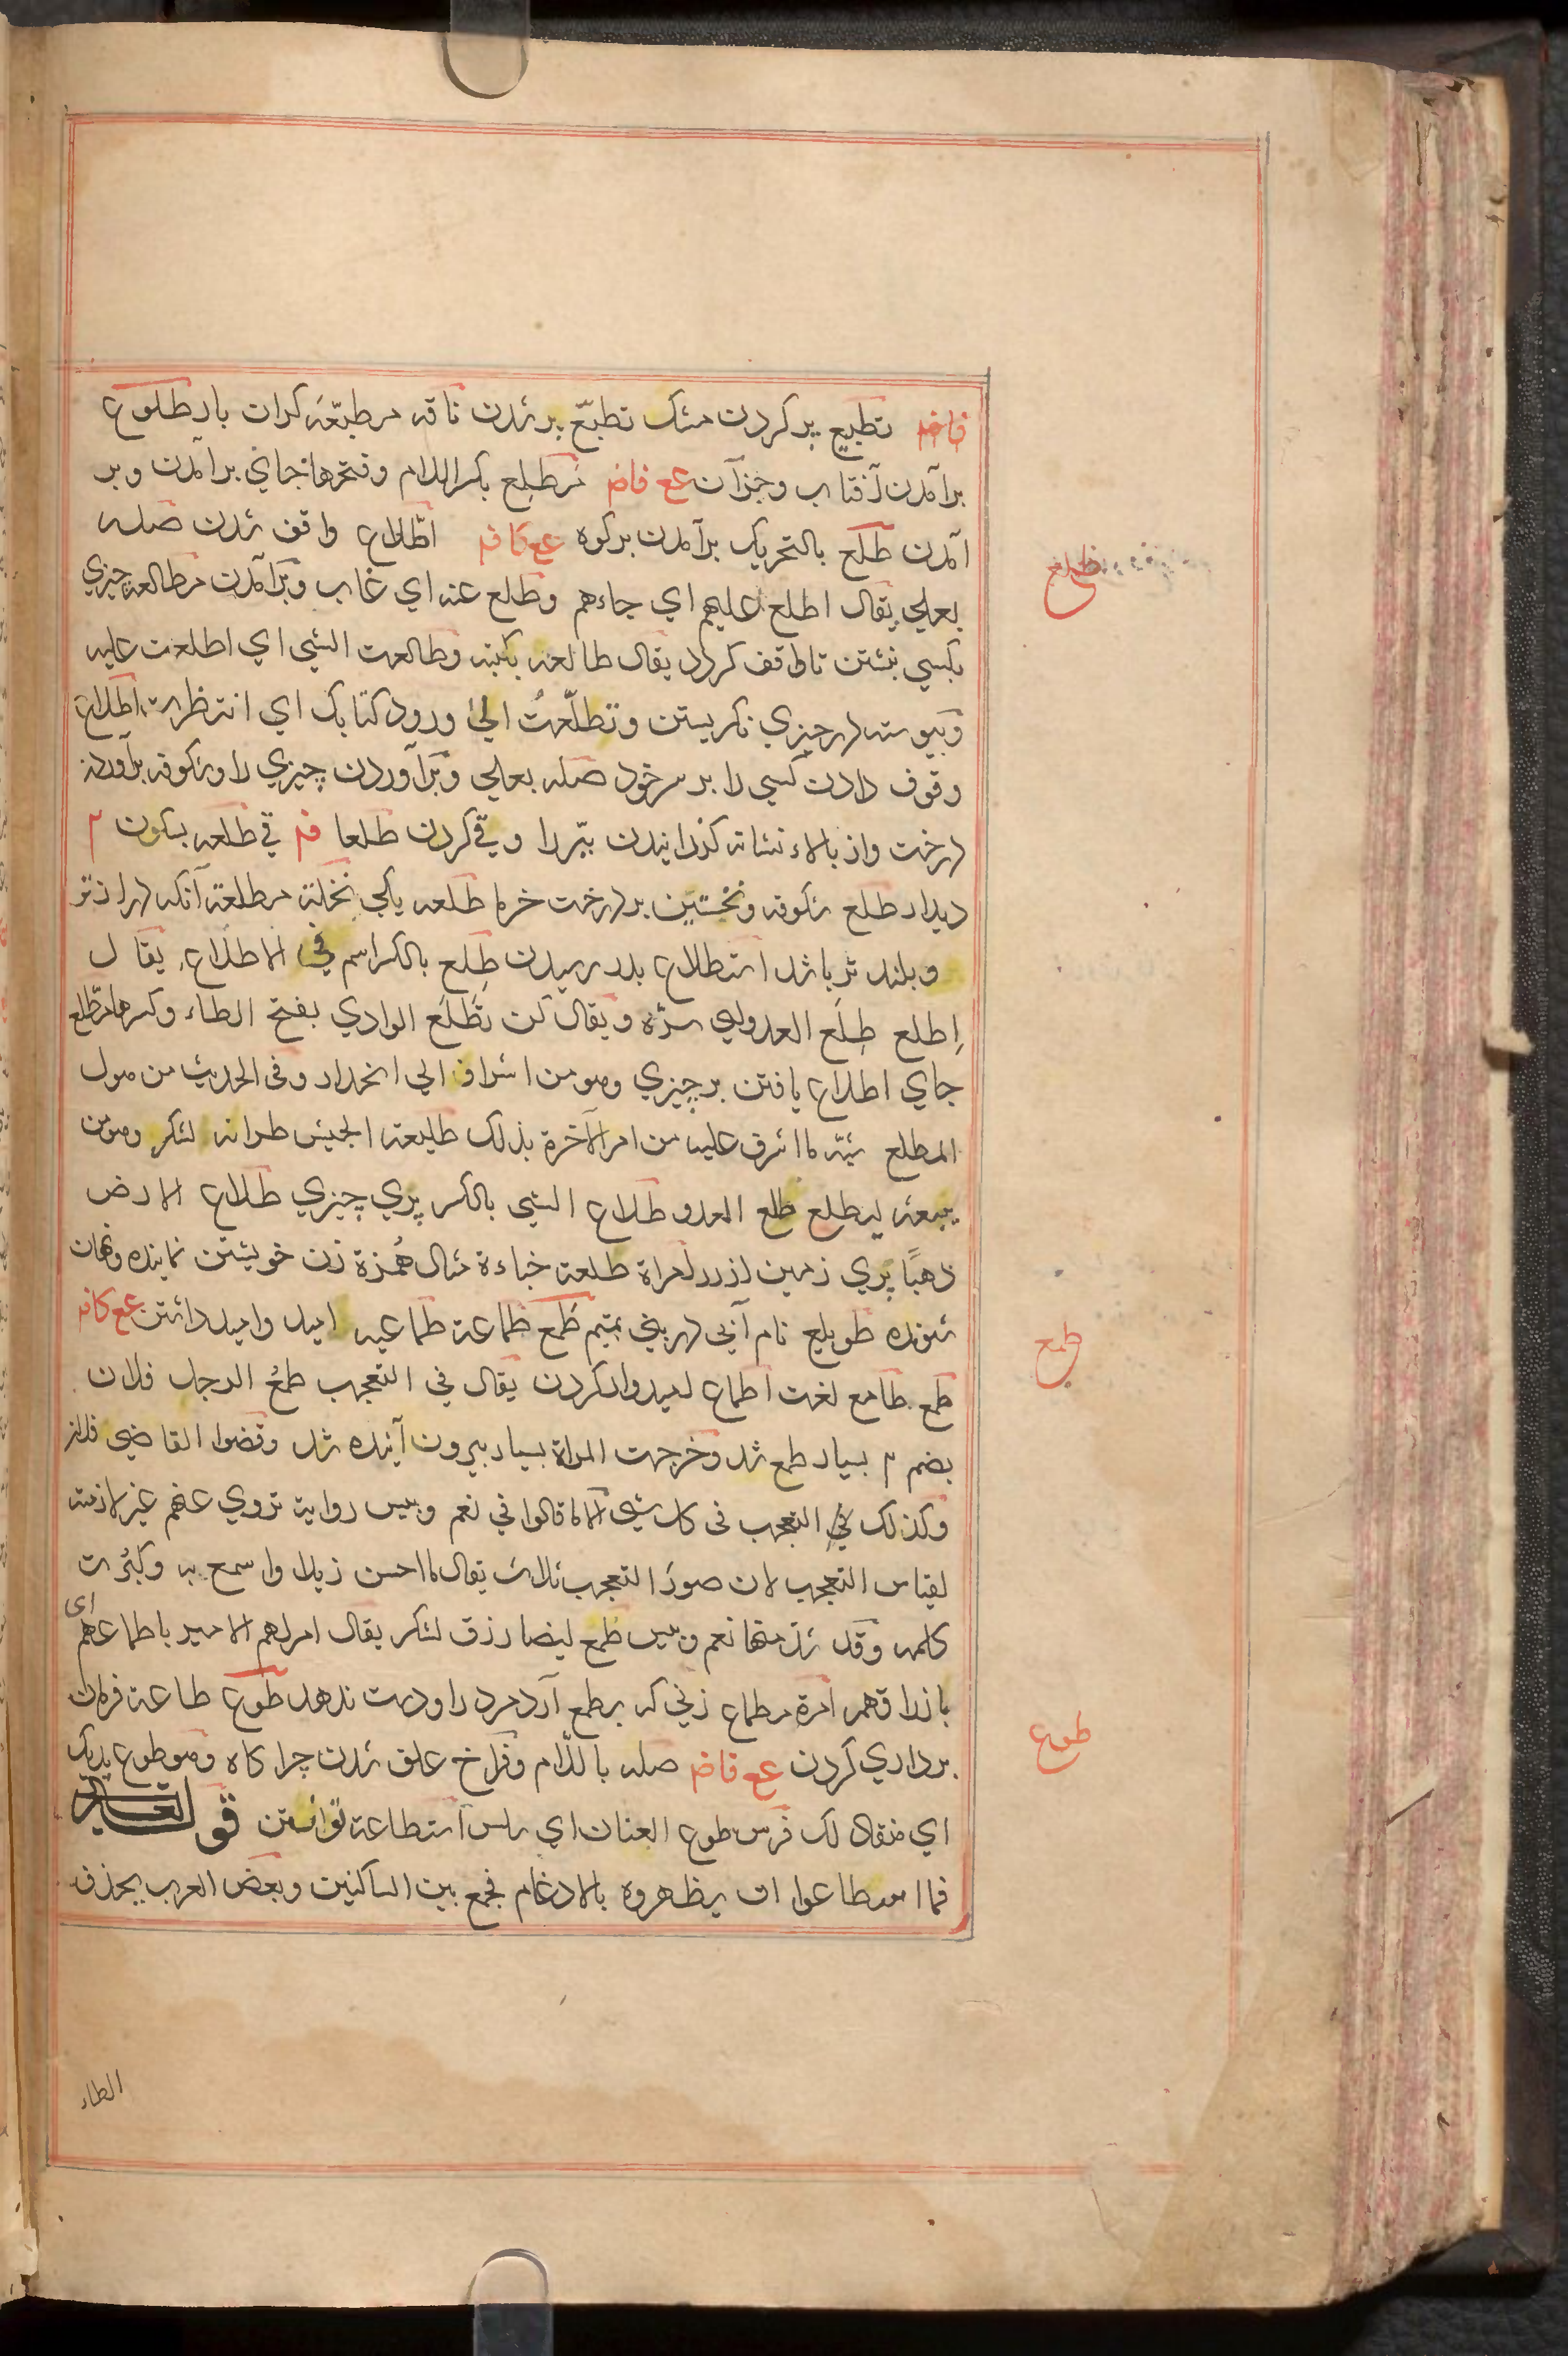 فاضم تطبيع پر کردن مشک تطبّع پر شدن ناقه مطبّعة گران بار طلوع
برآمدن آفتاب و جزآن عع فاضم مَطلِع بکسر اللام و فتحها جاي برآمدن و بر
آمدن طلَع بالتحريک برآمدن بر کوه عع كافم اطّلاع واقف شدن صله
بعلي يقال اطلع عليهم اي جاءهم وطلع عنه اي غاب و برآمدن مطالعه چيزي
بکسي نبشتن تا واقف گردد يقال طالعه بکتبه وطالعت الشي اي اطلعت عليه
و پيوسته در چيزي نگريستن وتطلّعتُ الي ورود کتابک اي انتظرت اطلاع
وقوف دادن کسي را بر سر خود صله بعلي و برآوردن چيزي را و شکوفه برآوردن
درخت و از بالاء نشانه گذرانيدن تير را و قي کردن طلعا فم قي طلعه بسکون م
ديدار طلع شکوفه نخستين بر درخت خرما طلعه يکي نخلة مطلعة آنکه دراز تر
و بلند تر باشد استطلاع بدر رسيدن طِلع بالکسر اسم في الاطلاع يقال
اِطلع طِلَع العدو اي سرّه ويقال کن بطَلَع الوادي بفتح الطاء وکسرها مطّلع
جاي اطلاع يافتن بر چيزي وهو من اشراف الي انحدار وفى الحديث من هول
المطلع شبّه ما اشرف عليه من امر الآخرة بذلک طليعة الجيش طرانه لشکر وهو من
يبعثه ليطلع طلع العدو طلاع الشي بالکسر پري چيزي طلاع الارض
ذهبًا پري زمين از زر امراة طلعة خباءة مثال هُمزة زن خويشتن نماينده و نهان
شونده طويلع نام آبي در بني تميم طَمع طماعة طماعيه اميد و اميد داشتن عع كافم
طمع طامع لغت اطماع اميدوار کردن يقال في التعجب طمُع الرجل فلان
بضم م بسيار طمع شد وخرجت المراة بسيار بيرون آينده شد وقضوا القاضي فلان
وکذلک في التعجب فى کل شي الا ما قالوا في نعم وبيس رواية تروي عنهم غير لازمة
لقياس التعجب لان صورَ التعجب ثلاث يقال ما احسن زيدا واسمع به وکبُرت
کلمه وقد شذ منها نعم وبيس طمع ايضا رزق لشکر يقال امر لهم الامير باطماعهم اى
بارزاقهم امرة مطماع زني که بر طمع آرد مرد را و دست ندهد طَوع طاعة فرمان
برداري کردن عع فاضم صله باللام و فراخ علف شدن چراگاه وهو طوع يديک
اي منقاد لک فرس طوع العنان اي سلس استطاعة توانستن قوله تعالى
فما اسطاعوا ان يظهروه بالادغام فجمع بين الساکنين وبعض العرب يحذف
طلع
طمع
طوع
الطاء